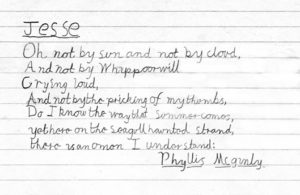 Jesse
Oh not by sun and not by cloud,
And not by Whippoorwill
Crying loud,
And not by the pricking of my thombs,
Do I know the way that Summer comes,
yet here on the Seagull haunted strand,
there is an omen I understand:
Phyllis Mcginly.